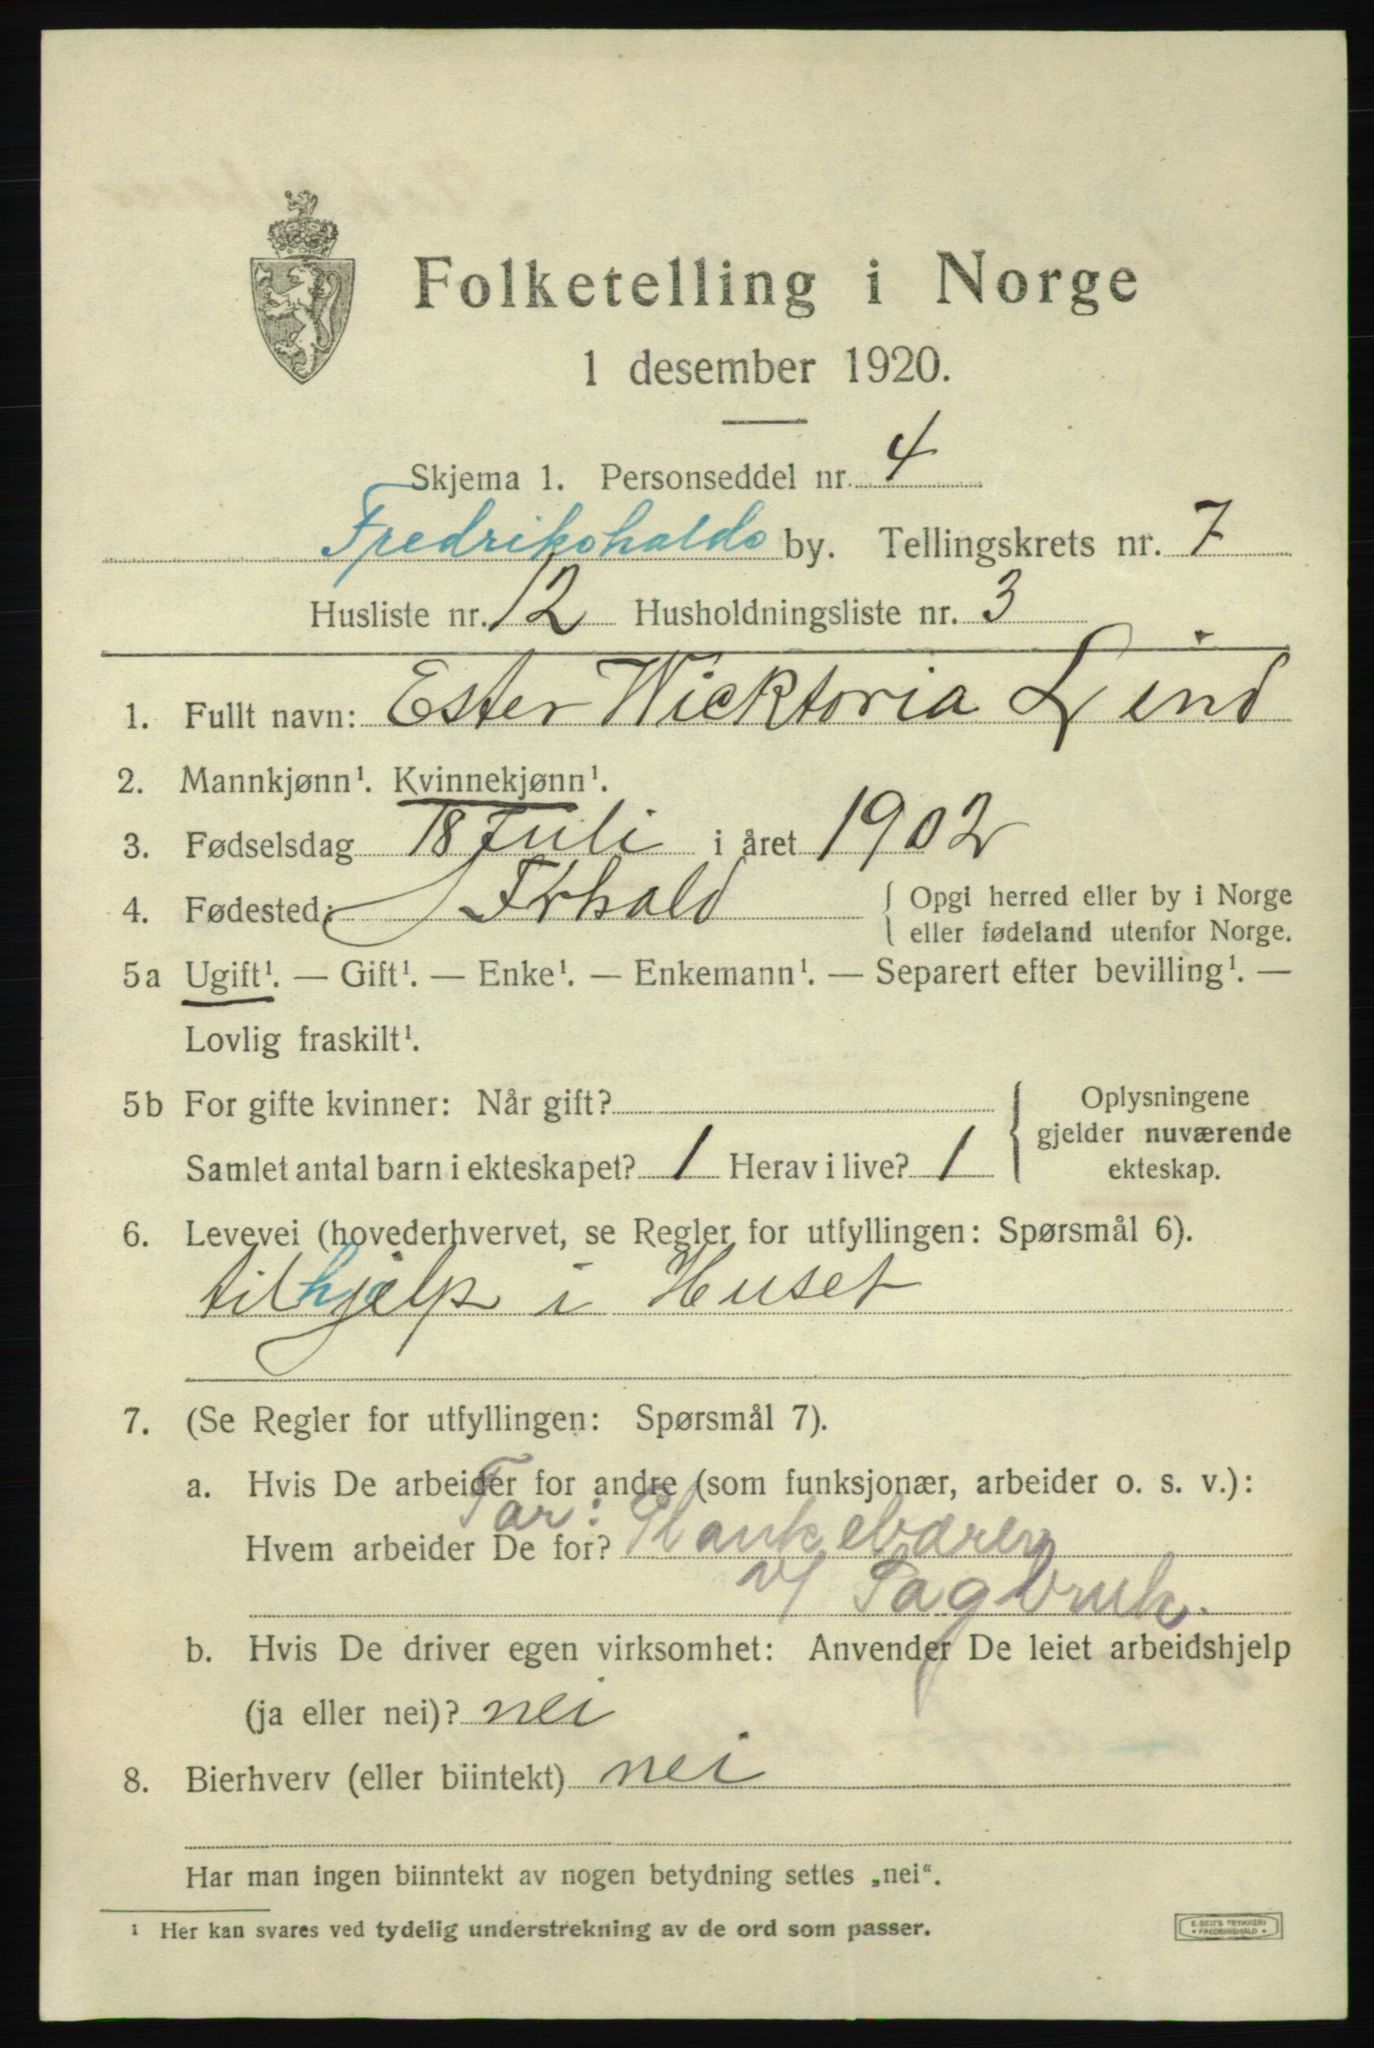 Folketelling i Norge
1 desember 1920.
Skjema 1. Personseddel nr. 4
Fredrikshalds by. Tellingskrets nr. 7
Husliste nr. 12 Husholdningsliste nr. 3
1. Fullt navn: Ester Wicktoria Lind
2. Mannkjønn¹. Kvinnekjønn¹.
3. Fødselsdag 18 Juli i året 1902
4. Fødested: Frhald { Opgi herred eller by i Norge
eller fødeland utenfor Norge.
5a Ugift¹. — Gift¹. — Enke¹. — Enkemann¹. — Separert efter bevilling¹. —
Lovlig fraskilt¹.
5b For gifte kvinner: Når gift? { Oplysningene
gjelder nuværende
Samlet antal barn i ekteskapet? 1 Herav i live? 1 ekteskap.
6. Levevei (hovederhvervet, se Regler for utfyllingen: Spørsmål 6).
tilhjælp i Huset
7. (Se Regler for utfyllingen: Spørsmål 7).
a. Hvis De arbeider for andre (som funksjonær, arbeider o. s. v.):
Far: Plankebærer
Hvem arbeider De for?
v/ Sagbruk.
b. Hvis De driver egen virksomhet: Anvender De leiet arbeidshjelp
(ja eller nei)? nei
8. Bierhverv (eller biintekt) nei
Har man ingen biinntekt av nogen betydning settes „nei“.
¹ Her kan svares ved tydelig understrekning av de ord som passer.
E. SEM'S TRYKKERI
• FREDRIKSHALD •